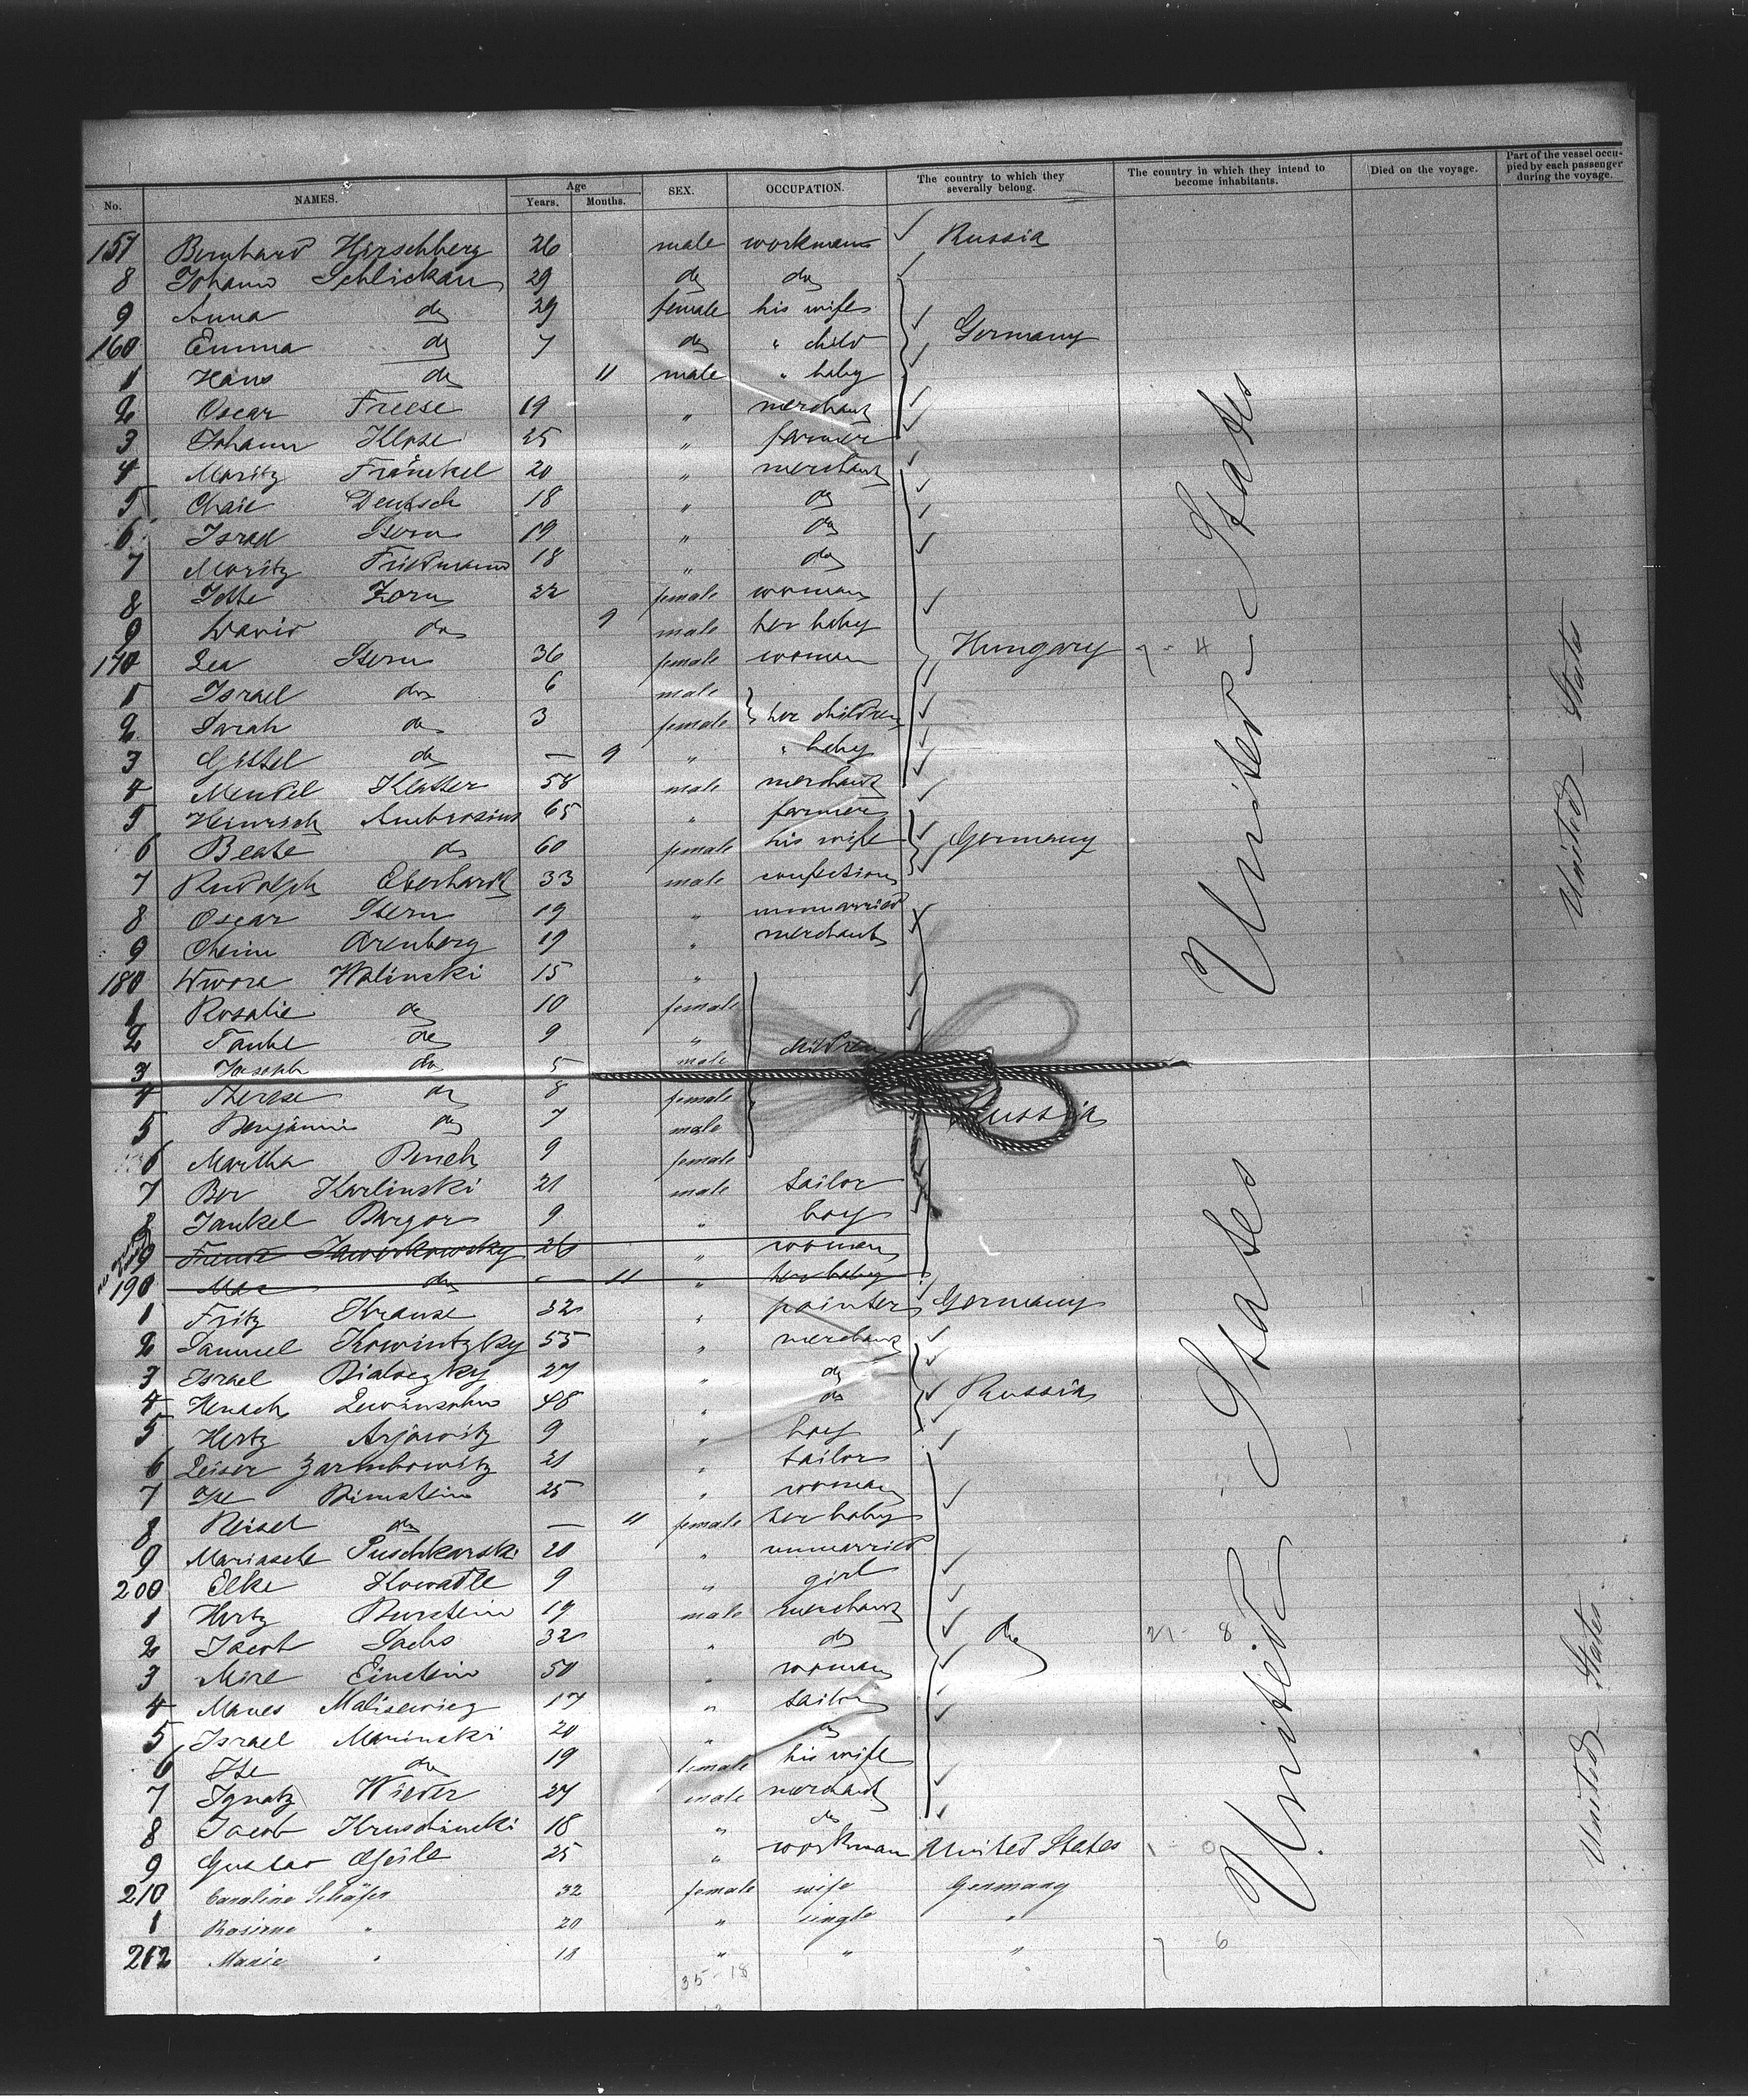 No. NAMES. Age Years. Months. SEX. OCCUPATION. The country to which they severally belong. The country in which they intend to become inhabitants. Died on the voyage. Part of the vessel occupied by each passenger during the voyage.
157 Bernhard Hirschberg 26 male workman Russia
8 Johann Schlickau 29 do do
9 Anna do 29 female his wife
160 Emma do 7 do " child Germany
1 Hans do 11 male " baby
2 Oscar Freese 19 " merchant
3 Johann Klose 25 " farmer
4 Moritz Fränckel 20 " merchant
5 Chaie Deutsch 18 " do
6 Israel Stern 19 " do
7 Moritz Friedmann 18 " do
8 Jotte Zorn 22 female woman
9 David do 9 male her baby
170 Lea Stern 36 female woman Hungary 7 - 4
1 Israel do 6 male
2 Sarah do 3 female her children
3 Gittel do — 9 " " baby
4 Mendel Klatter 58 male merchant
5 Heinrich Ambrosius 65 " farmer
6 Beate do 60 female his wife Germany
7 Rudolph Eberhardt 33 male confection
8 Oscar Stern 19 " unmarried
9 Cheim Arenberg 19 " merchant
180 Dwore Wolinski 15 "
1 Rosalie do 10 female
2 Taube do 9 "
3 Joseph do 5 male children
4 Therese do 8 female Russia
5 Benjamin do 7 male
6 Martha Bench 9 female
7 Ber Karlinski 21 male tailor
8 Jankel Bargor 9 " boy
9 Jaworkowsky 26 " woman
190 Max do — 11 " her baby
1 Fritz Krause 32 " painter Germany
2 Samuel Kowintzky 55 " merchant
3 Israel Bialoczky 27 " do
4 Henach Lewinsohn 48 " do Russia
5 Hertz Arjowitz 9 " boy
6 Leiser Zarembowitz 21 " tailor
7 Ite Birnstein 25 " woman
8 Reisel do — 11 female her baby
9 Mariasche Puschkarski 20 " unmarried
200 Elke Kowadle 9 " girl
1 Hertz Burstein 19 male merchant
2 Jacob Sachs 32 " do do 21 - 8
3 Mire Einstein 50 " woman
4 Manes Malisewicz 17 " tailor
5 Israel Marinski 20 " do
6 Ite do 19 female his wife
7 Ignatz Wieder 27 male merchant
8 Jacob Kruschinski 18 " do
9 Gustav 25 " workman United States 1 - 0
210 Caroline Schäfer 32 female wife Germany
1 Rosine " 20 " single "
212 Marie " 18 " " " 7 6
35 - 18
United - States
United - States
United - States
United States